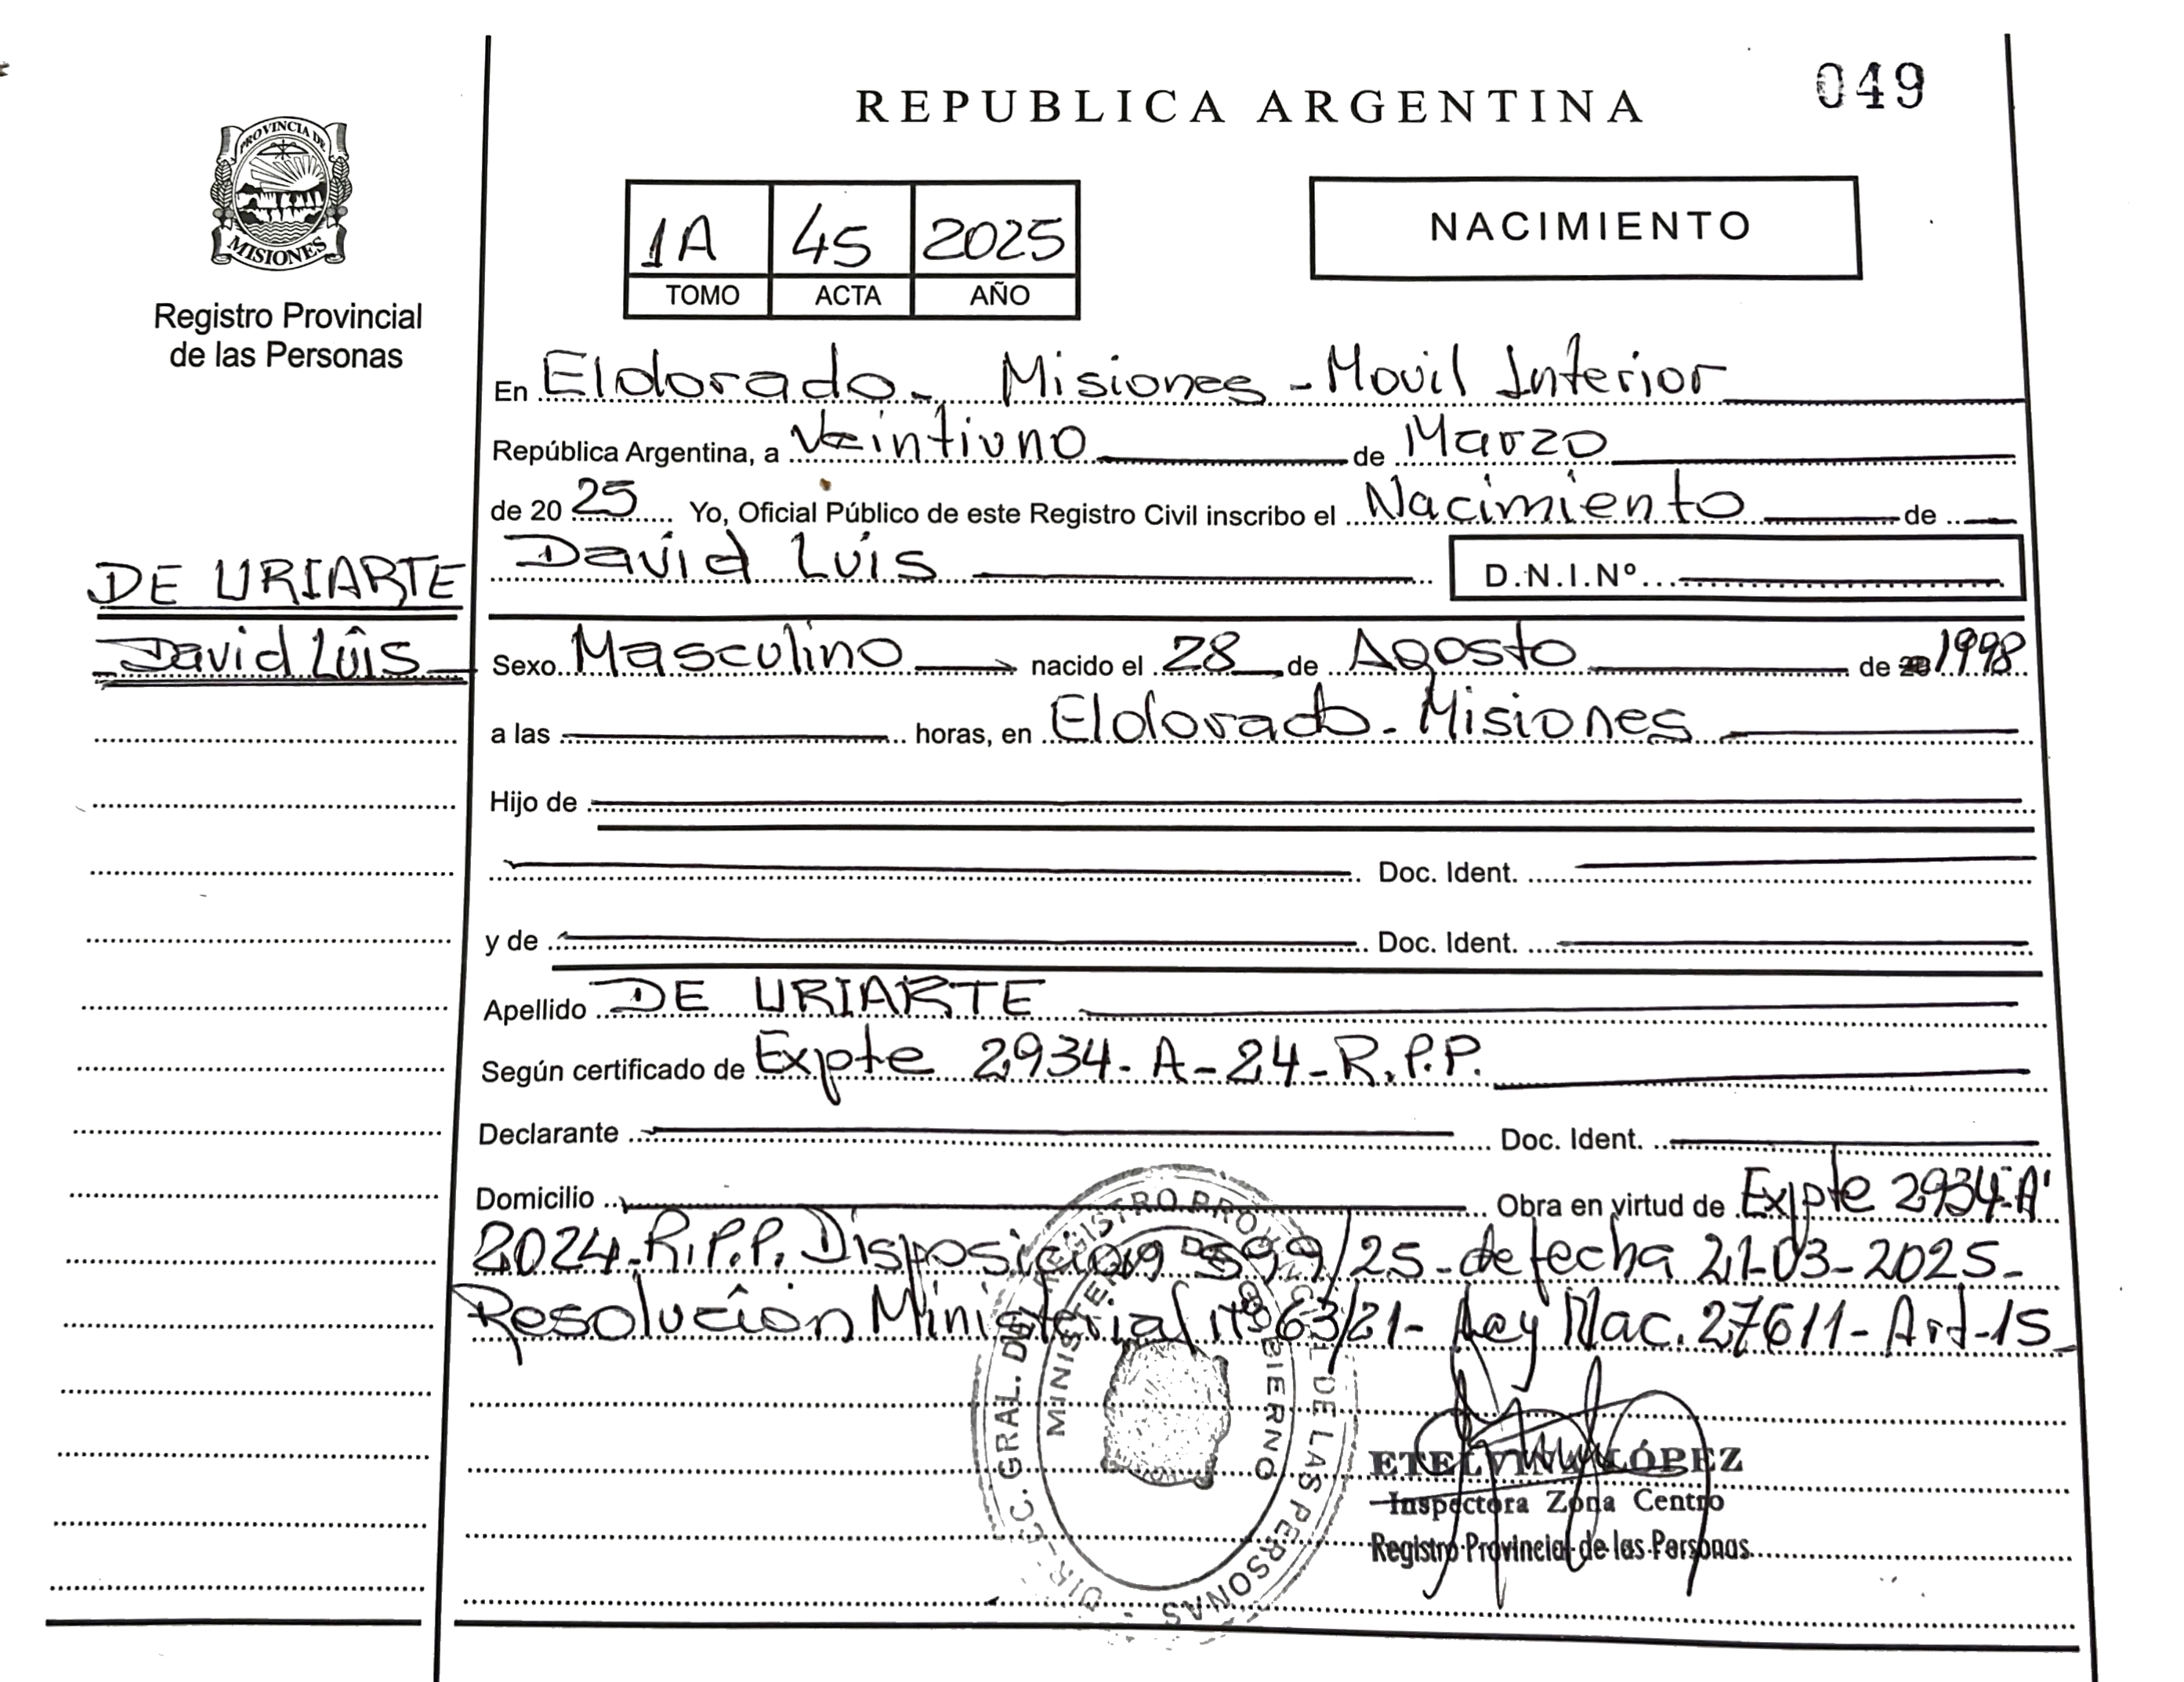 REPUBLICA ARGENTINA
049
PROVINCIA DE
MISIONES
Registro Provincial
de las Personas
1A 45 2025
TOMO ACTA AÑO
NACIMIENTO
En Eldorado - Misiones - Movil Interior
República Argentina, a Veintiuno de Marzo
de 20 25 Yo, Oficial Público de este Registro Civil inscribo el Nacimiento de
DE URIARTE
David Luis
David Luis D.N.I.Nº
Sexo Masculino nacido el 28 de Agosto de 1998
a las horas, en Eldorado - Misiones
Hijo de
Doc. Ident.
y de Doc. Ident.
Apellido DE URIARTE
Según certificado de Expte 2934-A-24-R.P.P.
Declarante Doc. Ident.
Domicilio Obra en virtud de Expte 2934-A'
2024-R.P.P. Disposición 599/25-de fecha 21-03-2025-
Resolución Ministerial nº 63/21- Ley Nac. 27611-Art-15-
DIREC. GRAL. DEL REGISTRO PROVINCIAL DE LAS PERSONAS
MINISTERIO DE GOBIERNO
ETELVINA LÓPEZ
Inspectora Zona Centro
Registro Provincial de las Personas